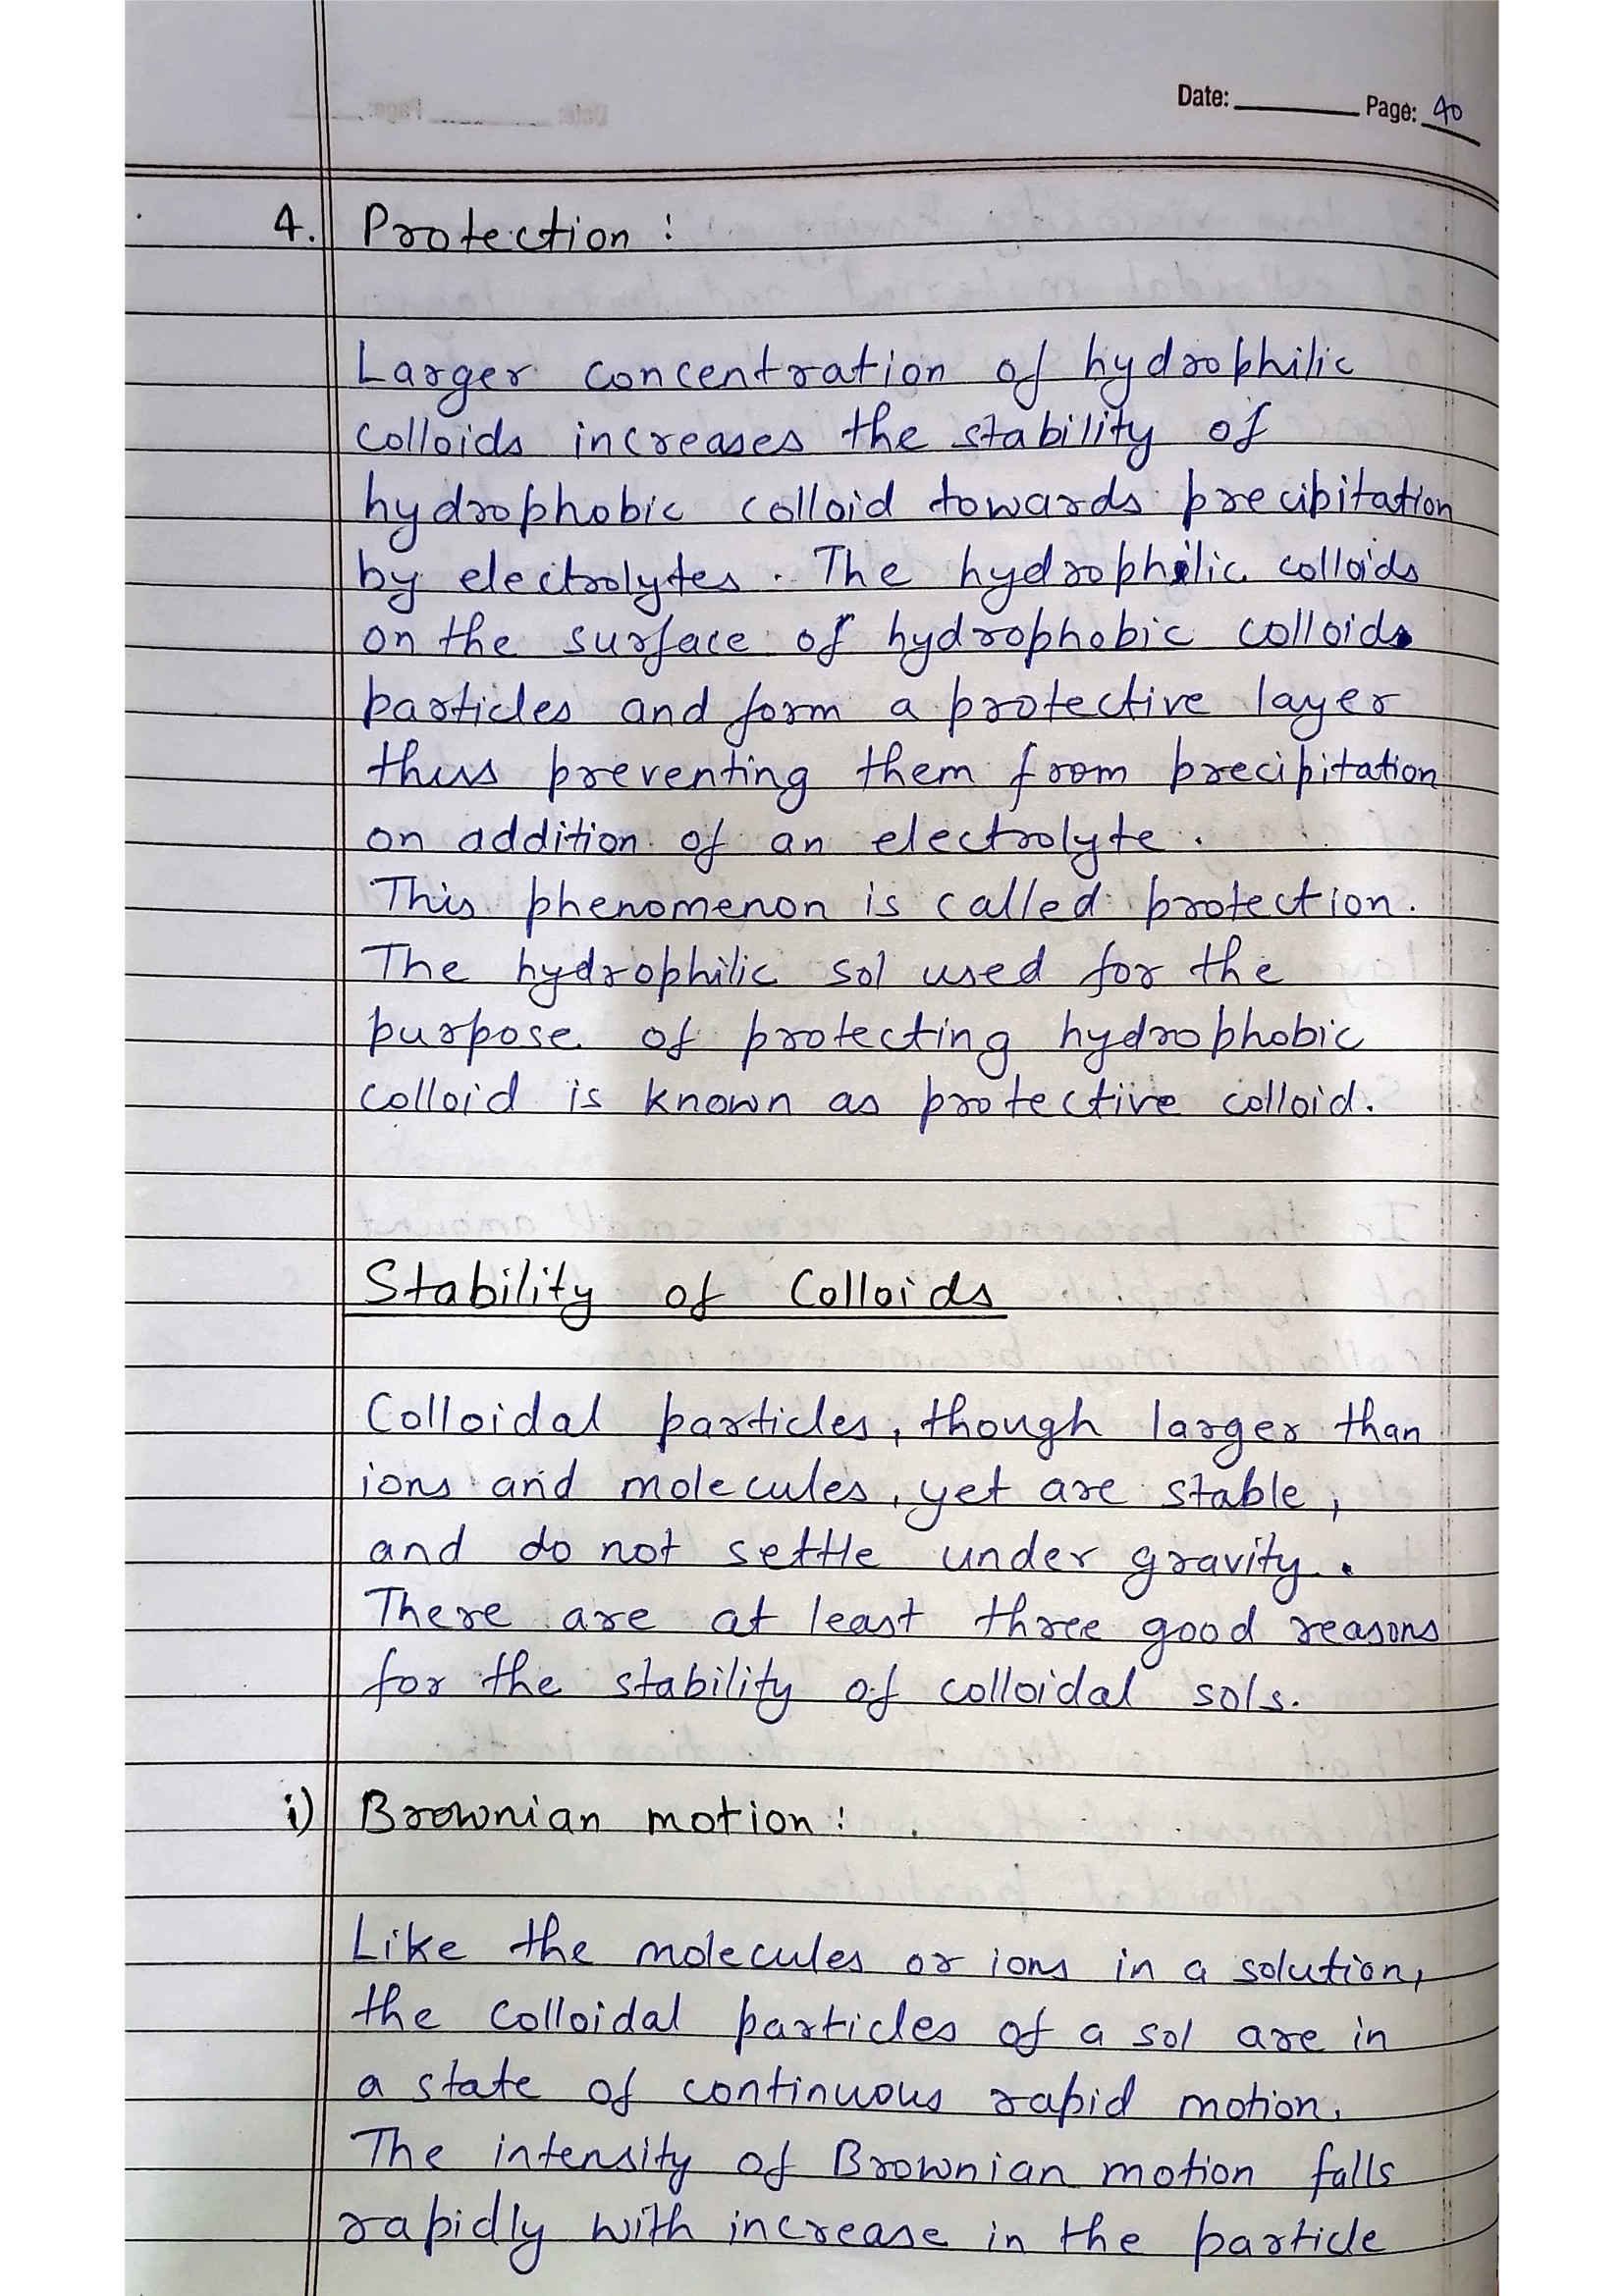 Date: ________ Page: 40
4. Protection :
Larger concentration of hydrophilic
colloids increases the stability of
hydrophobic colloid towards precipitation
by electrolytes. The hydrophilic colloids
on the surface of hydrophobic colloids
particles and form a protective layer
thus preventing them from precipitation
on addition of an electrolyte.
This phenomenon is called protection.
The hydrophilic sol used for the
purpose of protecting hydrophobic
colloid is known as protective colloid.
Stability of Colloids
Colloidal particles, though larger than
ions and molecules, yet are stable,
and do not settle under gravity.
There are at least three good reasons
for the stability of colloidal sols.
i) Brownian motion :
Like the molecules or ions in a solution,
the colloidal particles of a sol are in
a state of continuous rapid motion.
The intensity of Brownian motion falls
rapidly with increase in the particle